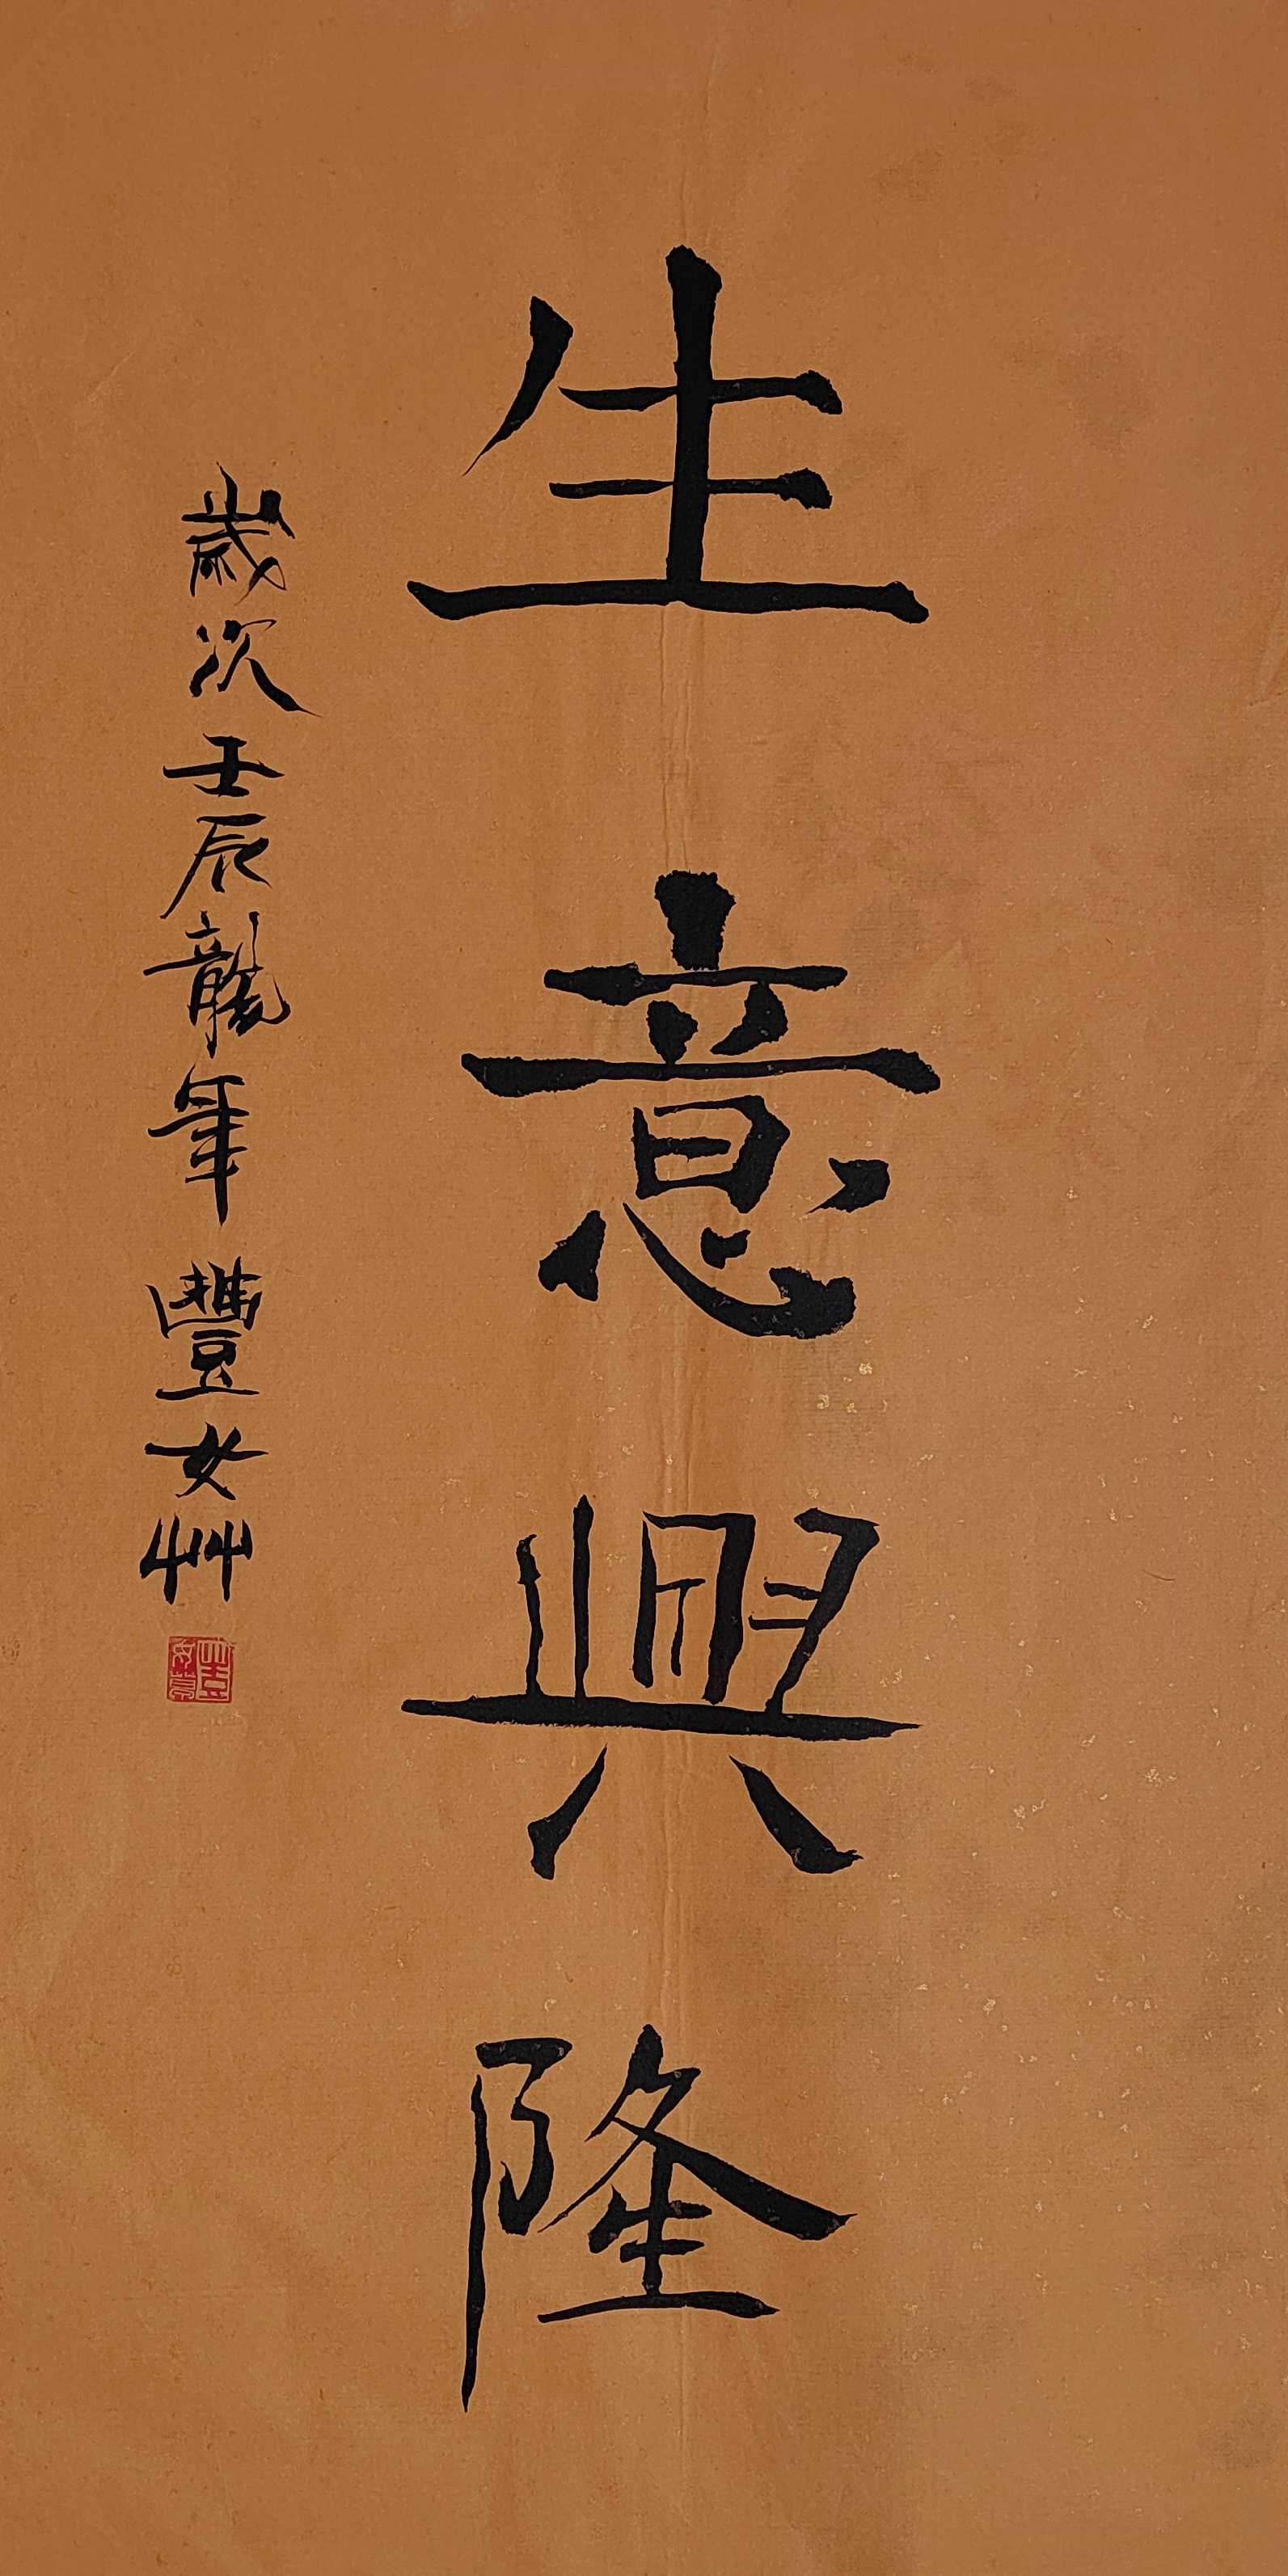 生意興隆
歲次壬辰龍年 豐女艸